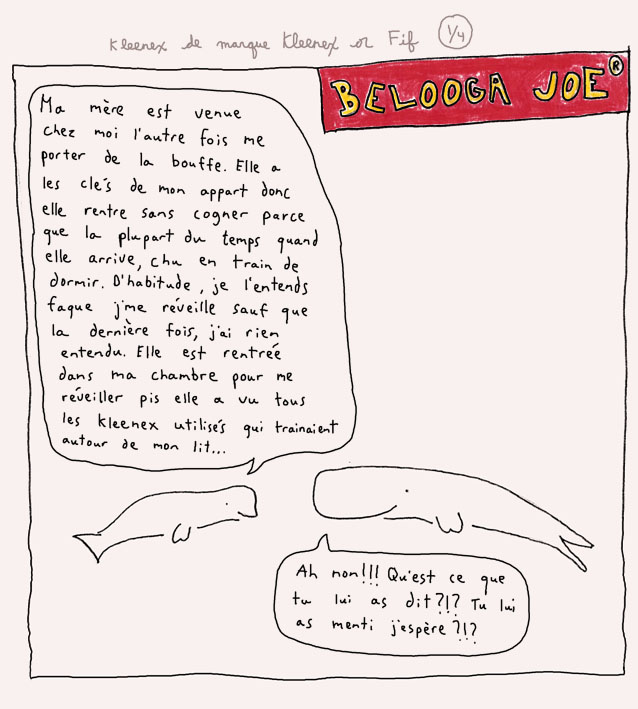 Kleenex de marque Kleenex or Fif 1/4
BELOOGA JOE®
Ma mère est venue
chez moi l'autre fois me
porter de la bouffe. Elle a
les clés de mon appart donc
elle rentre sans cogner parce
que la plupart du temps quand
elle arrive, chu en train de
dormir. D'habitude, je l'entends
faque j'me réveille sauf que
la dernière fois, j'ai rien
entendu. Elle est rentrée
dans ma chambre pour me
réveiller pis elle a vu tous
les kleenex utilisés qui trainaient
autour de mon lit...
Ah non!!! Qu'est ce que
tu lui as dit?!? Tu lui
as menti j'espère?!?